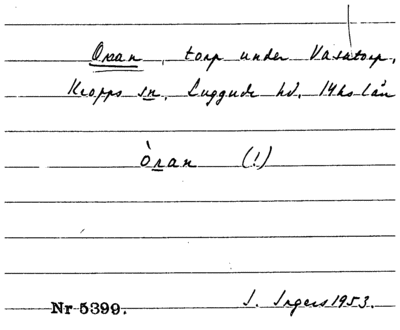 Oran, torp under Vasatorp,
Kropps sn, Luggude hd, Mhs län
òran (!)
Nr 5399. I. Ingers 1953.